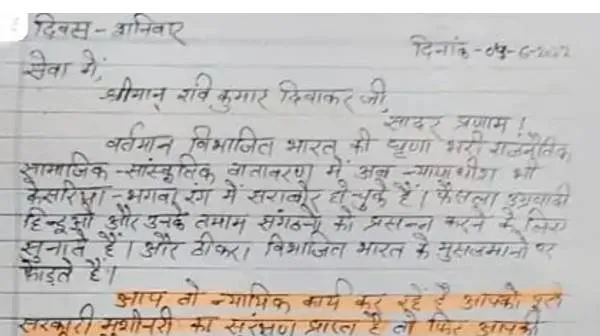 दिवस - शनिवार
दिनांक - 04-6-2022
सेवा में,
श्रीमान् रवि कुमार दिवाकर जी,
सादर प्रणाम !
वर्तमान विभाजित भारत की घृणा भरी राजनैतिक
सामाजिक - सांस्कृतिक वातावरण में अब न्यायाधीश भी
केसरिया - भगवा रंग में सराबोर हो चुके हैं। फैसला उग्रवादी
हिन्दुओं और उनके तमाम संगठनों को प्रसन्न करने के लिए
सुनाते हैं। और ठीकरा विभाजित भारत के मुसलमानों पर
फोड़ते हैं।
आप तो न्यायिक कार्य कर रहे हैं आपको पूरी
सरकारी मशीनरी का संरक्षण प्राप्त है तो फिर आपकी